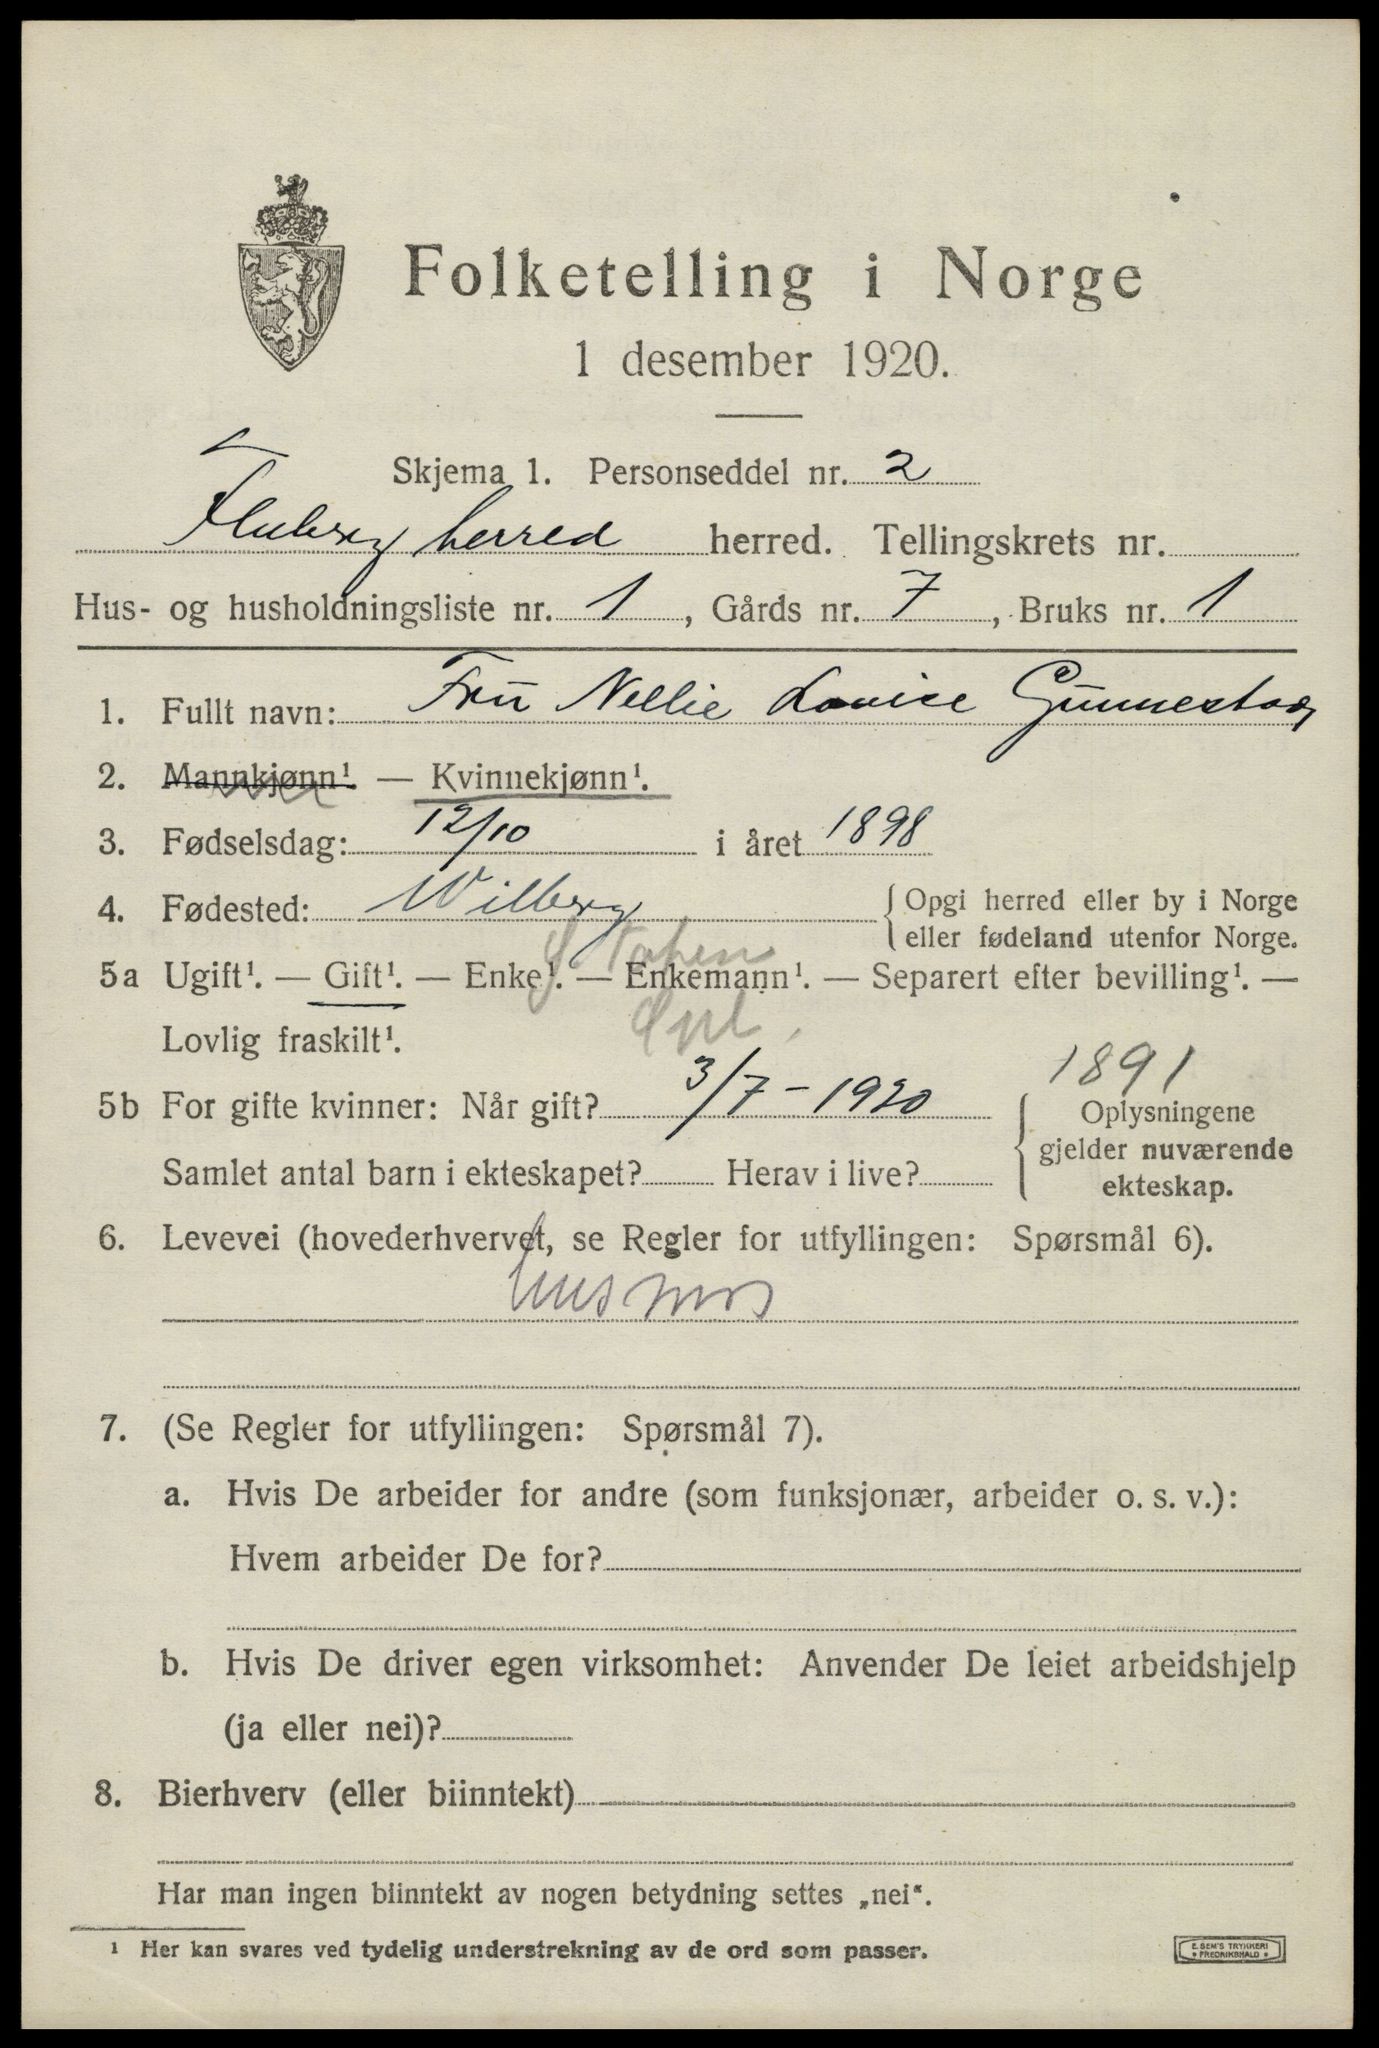 Folketelling i Norge
1 desember 1920.
Skjema 1. Personseddel nr. 2
Fluberg herred herred. Tellingskrets nr.
Hus- og husholdningsliste nr. 1, Gårds nr. 7, Bruks nr. 1
1. Fullt navn: Fru Nellie Lovise Gunnestad
2. Mannkjønn¹. — Kvinnekjønn¹.
3. Fødselsdag: 12/10 i året 1898
4. Fødested: Wilberg { Opgi herred eller by i Norge
eller fødeland utenfor Norge.
S. Toten
5a Ugift¹. — Gift¹. — Enke¹. — Enkemann¹. — Separert efter bevilling¹. —
Lovlig fraskilt¹.
1891
5b For gifte kvinner: Når gift? 3/7-1920 { Oplysningene
gjelder nuværende
ekteskap.
Samlet antal barn i ekteskapet? Herav i live?
6. Levevei (hovederhvervet, se Regler for utfyllingen: Spørsmål 6).
husmor
7. (Se Regler for utfyllingen: Spørsmål 7).
a. Hvis De arbeider for andre (som funksjonær, arbeider o. s. v.):
Hvem arbeider De for?
b. Hvis De driver egen virksomhet: Anvender De leiet arbeidshjelp
(ja eller nei)?
8. Bierhverv (eller biinntekt)
Har man ingen biinntekt av nogen betydning settes „nei“.
¹ Her kan svares ved tydelig understrekning av de ord som passer.
E. SEM'S TRYKKERI
* FREDRIKSHALD *